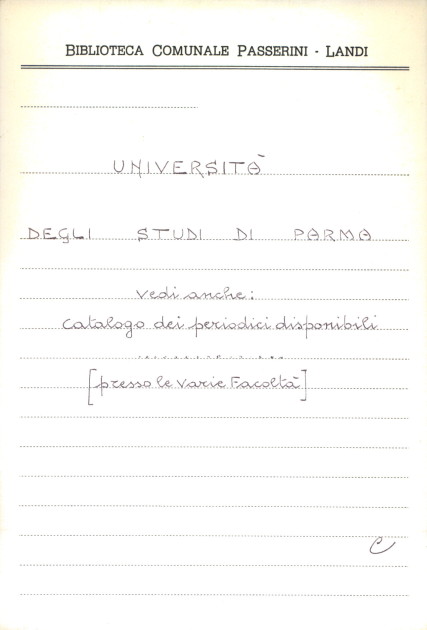 BIBLIOTECA COMUNALE PASSERINI - LANDI
UNIVERSITÀ
DEGLI STUDI DI PARMA
vedi anche:
catalogo dei periodici disponibili
..................
[presso le varie Facoltà]
C